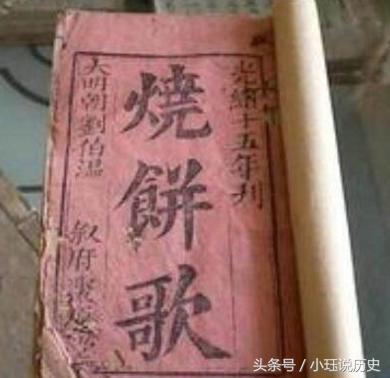 光緒十五年刊
燒餅歌
大明朝劉伯溫
叙府
头条号 / 小珏说历史